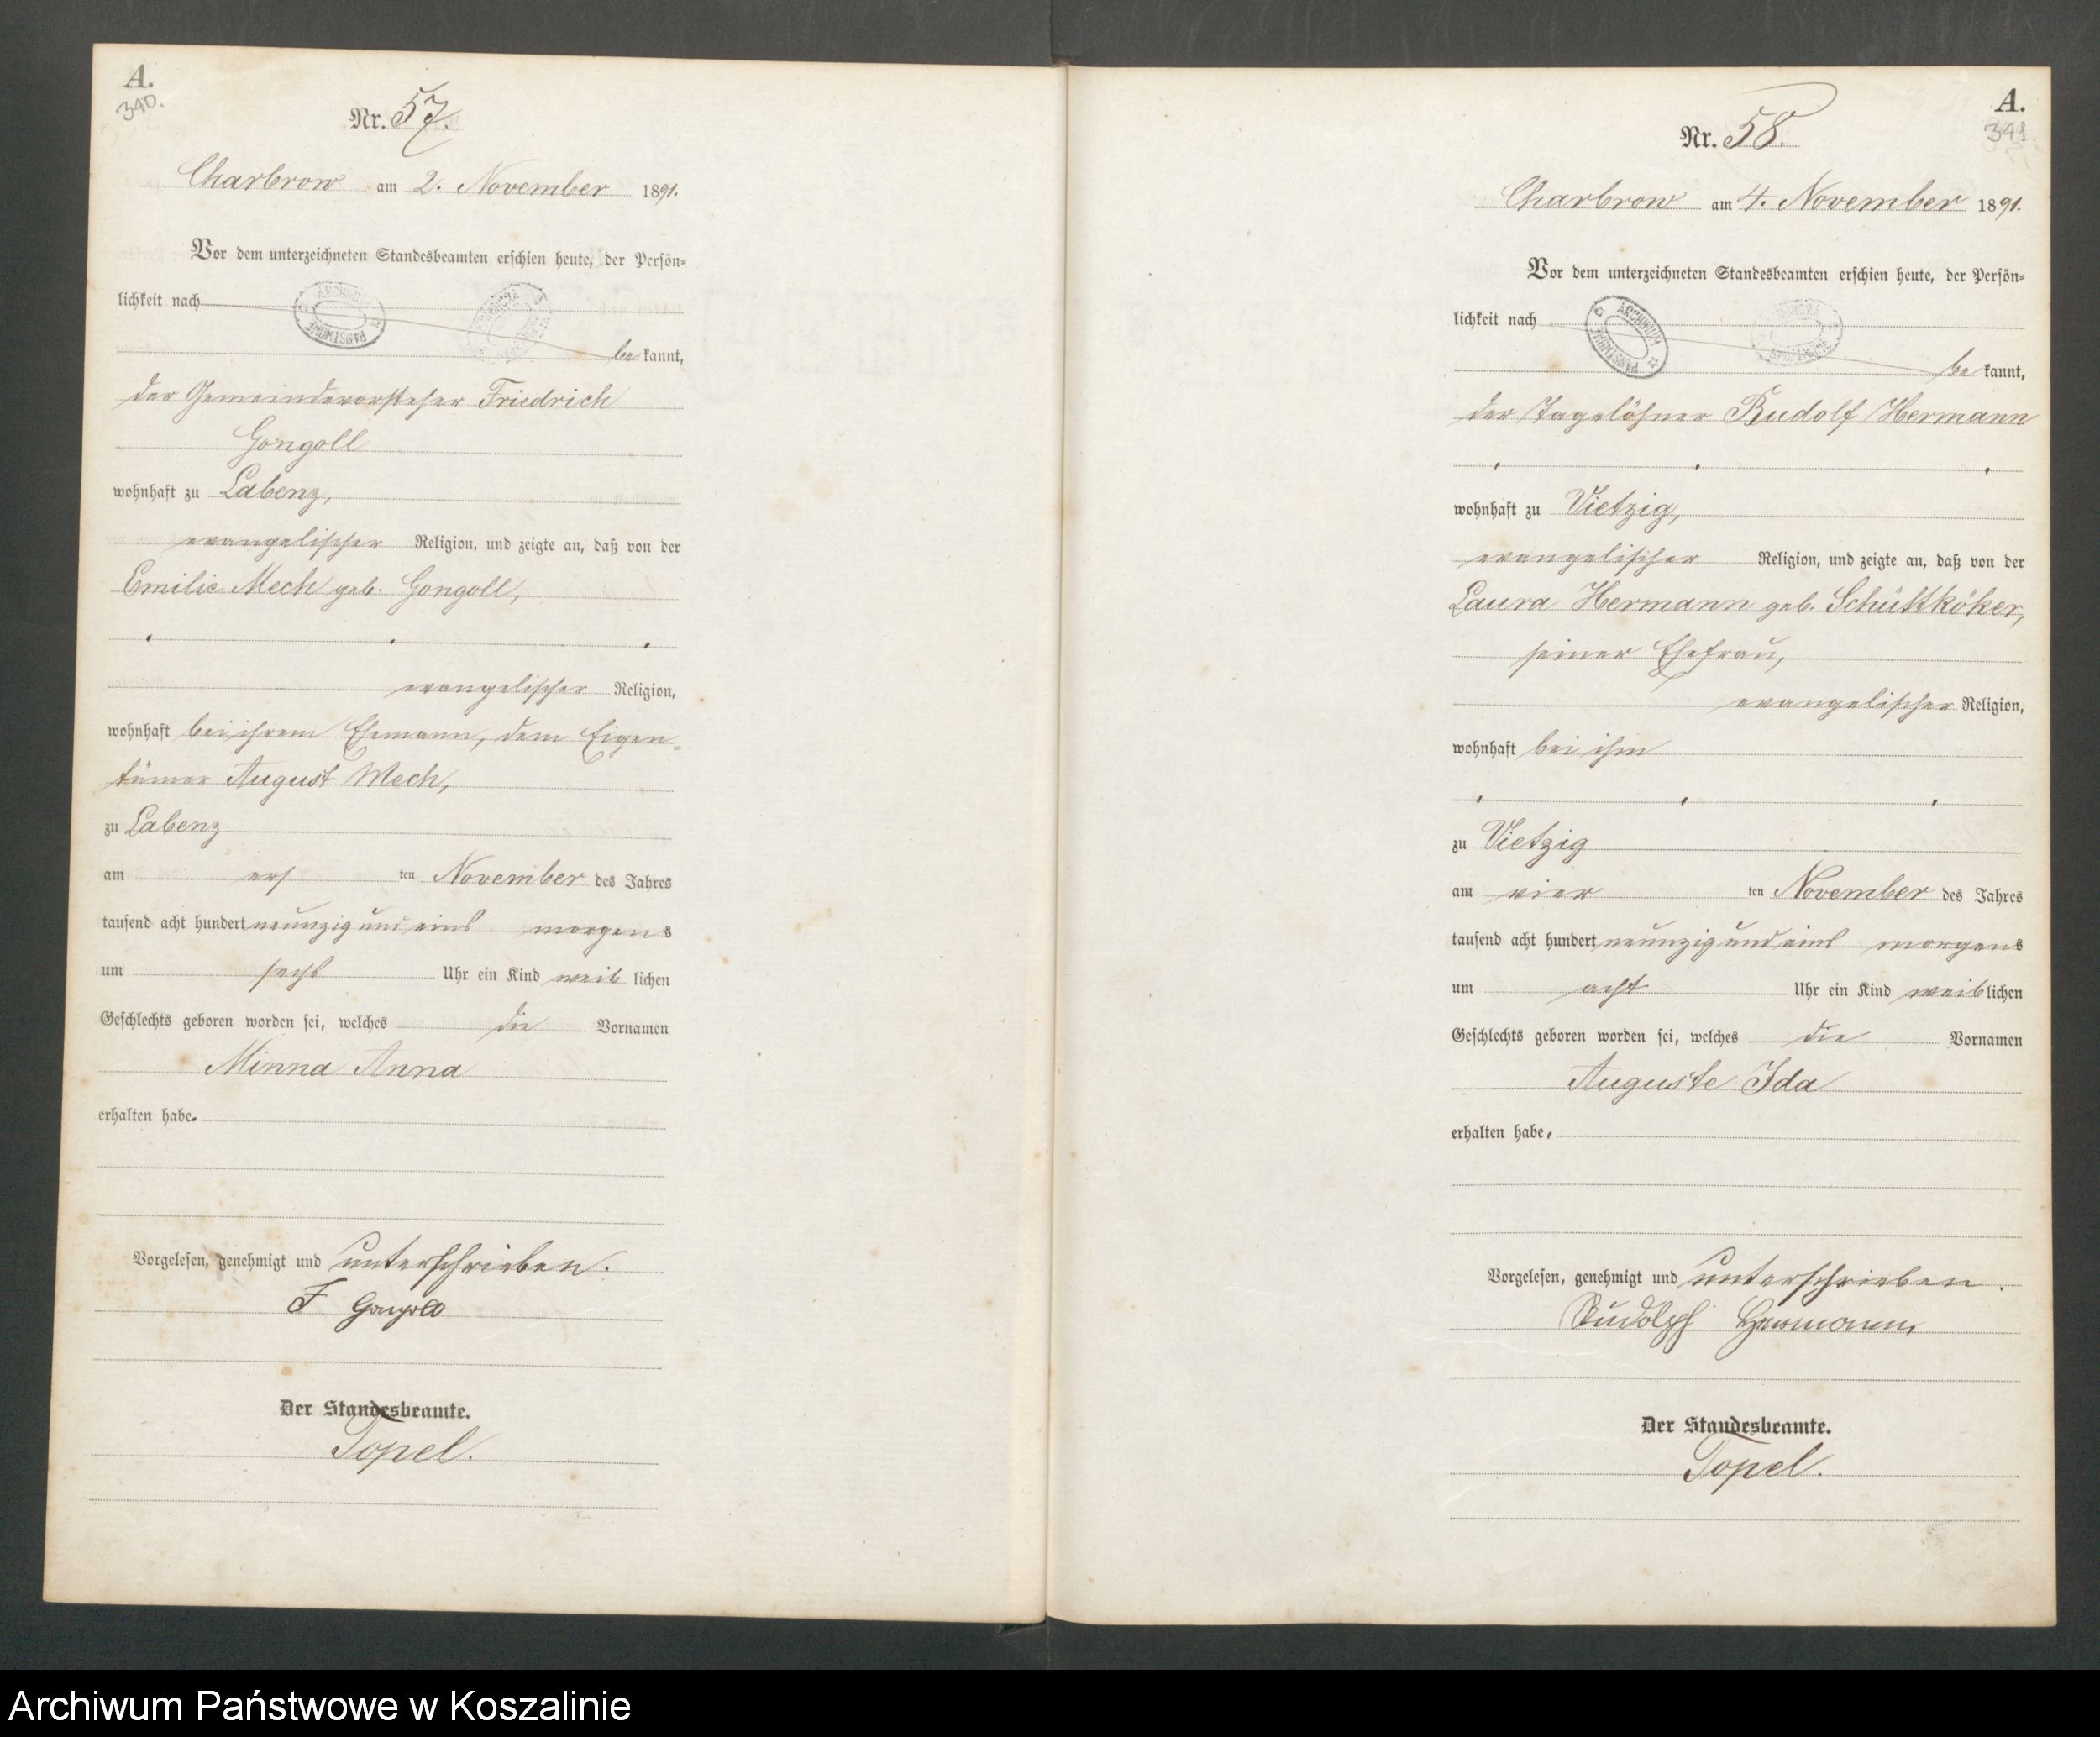 A.
340.
Nr. 57.
Charbrow am 2. November 1891.
Vor dem unterzeichneten Standesbeamten erschien heute, der Persön-
lichkeit nach
be kannt,
der Gemeindevorsteher Friedrich
Gongoll
wohnhaft zu Labenz,
evangelischer Religion, und zeigte an, daß von der
Emilie Mech geb. Gongoll,
evangelischer Religion,
wohnhaft bei ihrem Ehemann, dem Eigen-
tümer August Mech,
zu Labenz
am ers ten November des Jahres
tausend acht hundert neunzig und eins morgens
um sechs Uhr ein Kind weib lichen
Geschlechts geboren worden sei, welches die Vornamen
Minna Anna
erhalten habe.
Vorgelesen, genehmigt und unterschrieben.
F Gongoll
Der Standesbeamte.
Topel.
A.
341
Nr. 58.
Charbrow am 4. November 1891.
Vor dem unterzeichneten Standesbeamten erschien heute, der Persön-
lichkeit nach
ARCHIWUM PAŃSTWOWE
be kannt,
der Tagelöhner Rudolf Hermann
wohnhaft zu Vietzig,
evangelischer Religion, und zeigte an, daß von der
Laura Hermann geb. Schüttköker,
seiner Ehefrau,
evangelischer Religion,
wohnhaft bei ihm
zu Vietzig
am vier ten November des Jahres
tausend acht hundert neunzig und eins morgens
um acht Uhr ein Kind weib lichen
Geschlechts geboren worden sei, welches die Vornamen
Auguste Ida
erhalten habe.
Vorgelesen, genehmigt und unterschrieben.
Rudolph Hermann
Der Standesbeamte.
Topel.
Archiwum Państwowe w Koszalinie